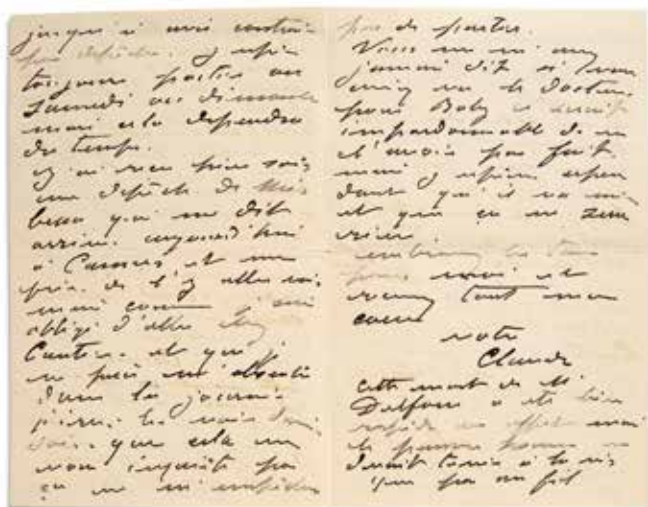 jusqu'à avis contraire
par dépêche. J'espère
toujours partir ou
Samedi ou dimanche
mais cela dépendra
du temps.
J'ai reçu hier soir
une dépêche de
qui me dit
arriver aujourd'hui
à Cannes et me
prie de l'y aller voir
mais comme j'ai
obligé d'aller
et que je
ne puis m'absenter
dans la journée
j'irai les voir
soir. que cela ne
vous inquiète pas
ça ne m'empêchera
pas de partir.
Vous ne m'avez
jamais dit si vous
aviez vu le Docteur
pour Baby ce serait
impardonnable de ne
l'avoir pas fait.
mais j'espère cependant
qu'il va mieux
et que ça ne sera
rien
embrassez les tous
pour moi et
recevez tout mon
coeur
votre
Claude
cette mort de M.
a été bien
rapide en effet mais
le pauvre homme ne
devait tenir à la vie
que par un fil